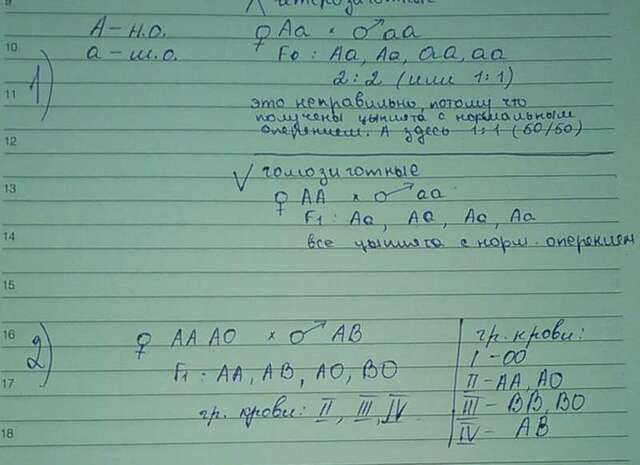 гетерозиготные
А – н.о.
а – ш.о.
1)
♀ Аа × ♂ аа
F0 : Аа, Аа, аа, аа
2:2 (или 1:1)
это неправильно, потому что
получены цыплята с нормальным
оперением. А здесь 1:1 (50/50)
V гомозиготные
♀ АА × ♂ аа
F1 : Аа, Аа, Аа, Аа
все цыплята с норм. оперением
2)
♀ АА АО × ♂ АВ
F1 : АА, АВ, АО, ВО
гр. крови: II, III, IV
гр. крови:
I – ОО
II – АА, АО
III – ВВ, ВО
IV – АВ
9
10
11
12
13
14
15
16
17
18